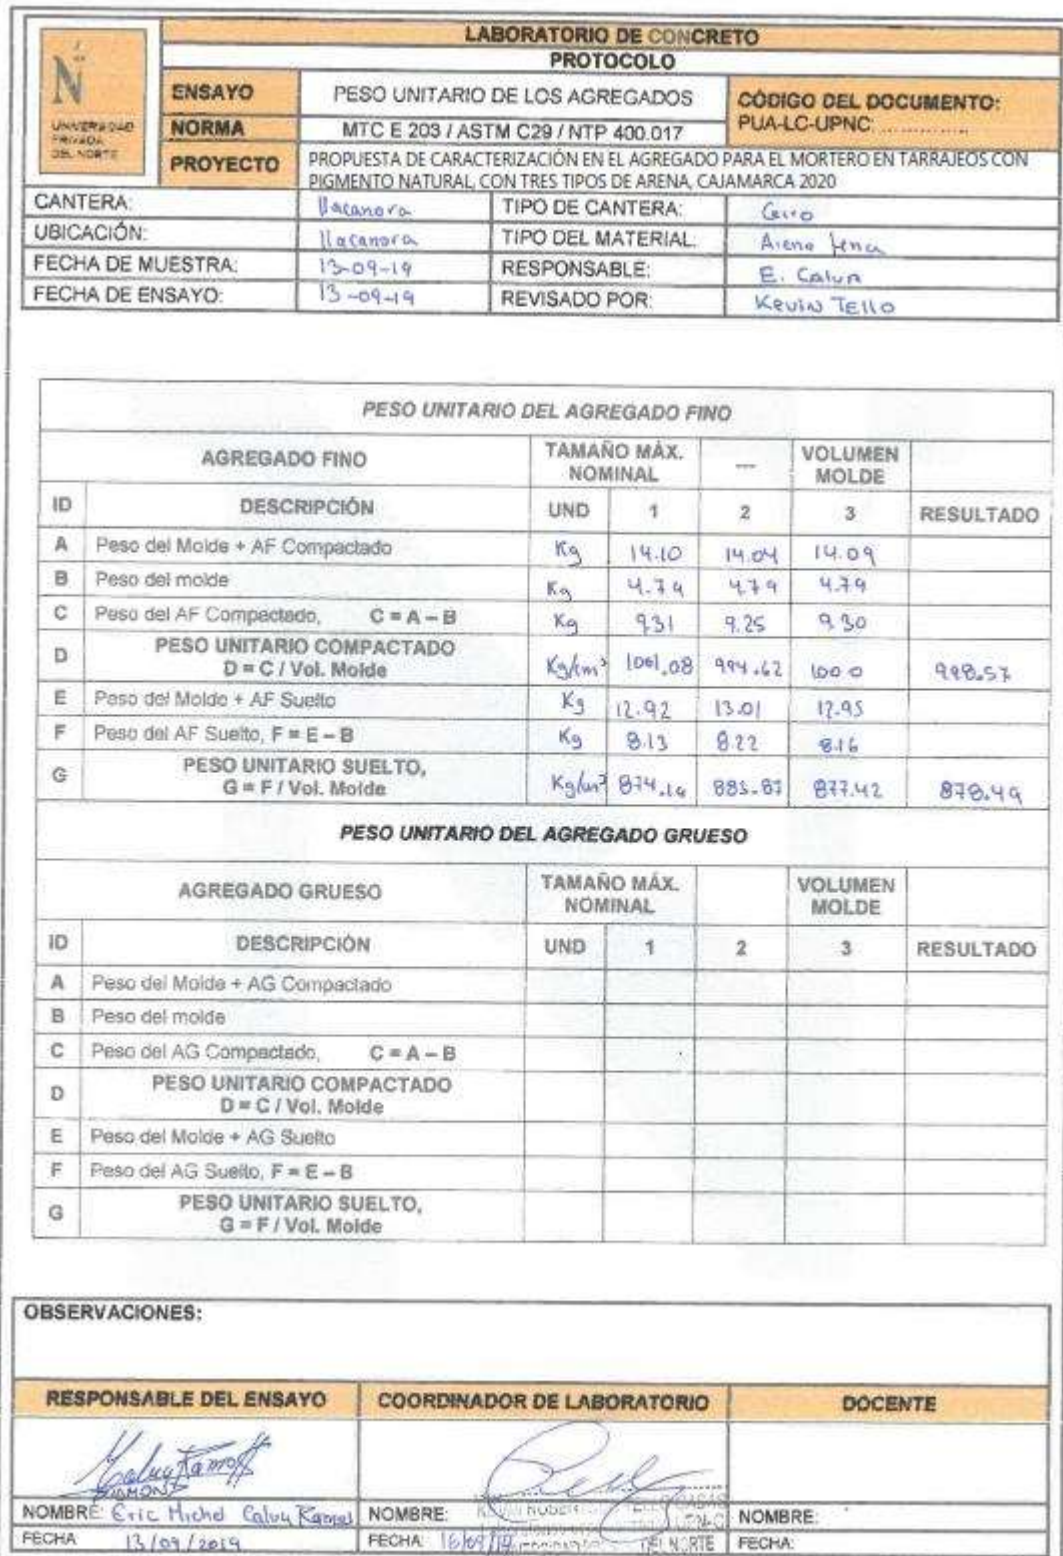 LABORATORIO DE CONCRETO
PROTOCOLO
N
UNIVERSIDAD
PRIVADA
DEL NORTE
ENSAYO PESO UNITARIO DE LOS AGREGADOS CÓDIGO DEL DOCUMENTO:
NORMA MTC E 203 / ASTM C29 / NTP 400.017 PUA-LC-UPNC: ...............
PROYECTO PROPUESTA DE CARACTERIZACIÓN EN EL AGREGADO PARA EL MORTERO EN TARRAJEOS CON
PIGMENTO NATURAL, CON TRES TIPOS DE ARENA, CAJAMARCA 2020
CANTERA: llacanora TIPO DE CANTERA: Cerro
UBICACIÓN: llacanora TIPO DEL MATERIAL: Arena
FECHA DE MUESTRA: 13-09-19 RESPONSABLE: E. Calua
FECHA DE ENSAYO: 13-09-19 REVISADO POR: Kevin Tello
PESO UNITARIO DEL AGREGADO FINO
AGREGADO FINO TAMAÑO MÁX. NOMINAL --- VOLUMEN MOLDE
ID DESCRIPCIÓN UND 1 2 3 RESULTADO
A Peso del Molde + AF Compactado Kg 14.10 14.04 14.09
B Peso del molde Kg 4.79 4.79 4.79
C Peso del AF Compactado, C = A – B Kg 9.31 9.25 9.30
D PESO UNITARIO COMPACTADO
D = C / Vol. Molde Kg/m³ 1001.08 994.62 1000 998.57
E Peso del Molde + AF Suelto Kg 12.92 13.01 12.95
F Peso del AF Suelto, F = E – B Kg 8.13 8.22 8.16
G PESO UNITARIO SUELTO,
G = F / Vol. Molde Kg/m³ 874.19 883.87 877.42 878.49
PESO UNITARIO DEL AGREGADO GRUESO
AGREGADO GRUESO TAMAÑO MÁX. NOMINAL VOLUMEN MOLDE
ID DESCRIPCIÓN UND 1 2 3 RESULTADO
A Peso del Molde + AG Compactado
B Peso del molde
C Peso del AG Compactado, C = A – B
D PESO UNITARIO COMPACTADO
D = C / Vol. Molde
E Peso del Molde + AG Suelto
F Peso del AG Suelto, F = E – B
G PESO UNITARIO SUELTO,
G = F / Vol. Molde
OBSERVACIONES:
RESPONSABLE DEL ENSAYO COORDINADOR DE LABORATORIO DOCENTE
NOMBRE: Eric Michel Calua Ramos NOMBRE: NOMBRE:
FECHA 13/09/2019 FECHA: 16/09/19 DEL NORTE FECHA: